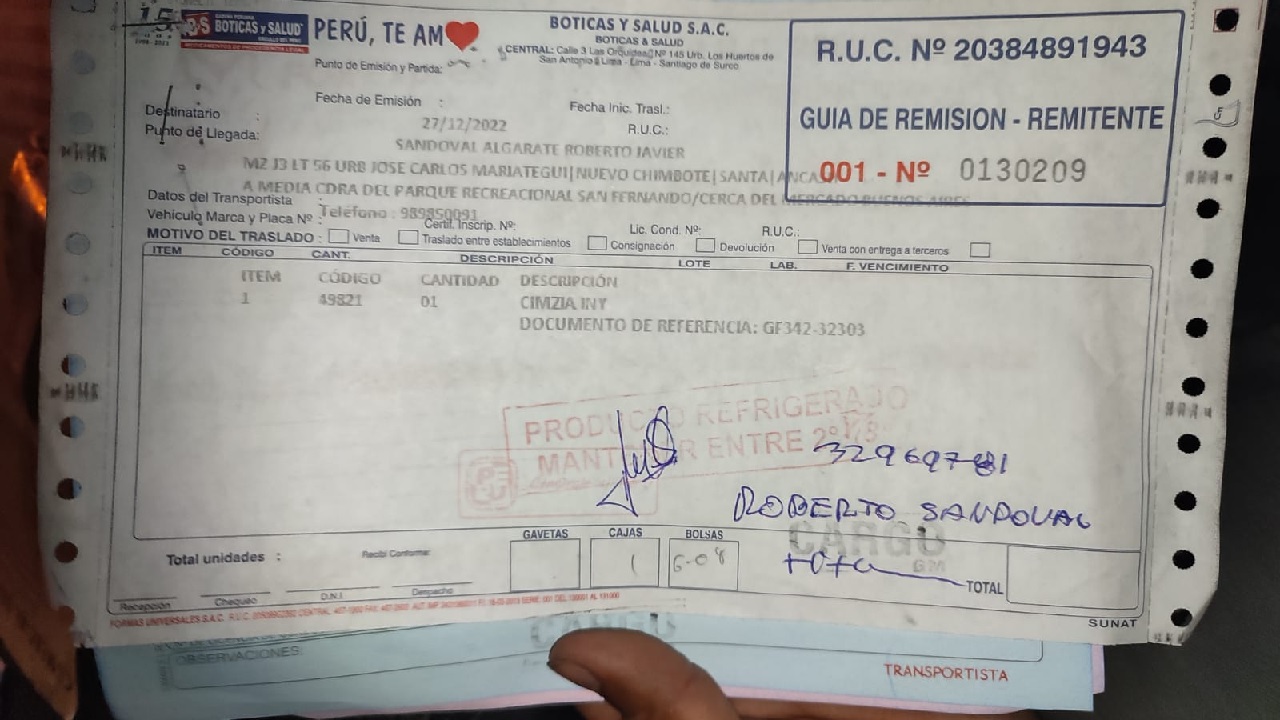 BOTICAS Y SALUD
PERÚ, TE AM
BOTICAS Y SALUD S.A.C.
BOTICAS & SALUD
CENTRAL: Calle 3 Las Orquídeas Nº 145 Urb. Los Huertos de
San Antonio - Lima - Santiago de Surco
R.U.C. Nº 20384891943
GUIA DE REMISION - REMITENTE
001 - Nº 0130209
Punto de Emisión y Partida:
Fecha de Emisión :
Fecha Inic. Trasl.:
Destinatario :
27/12/2022
R.U.C.:
Punto de Llegada:
SANDOVAL ALGARATE ROBERTO JAVIER
MZ J3 LT 56 URB JOSE CARLOS MARIATEGUI|NUEVO CHIMBOTE|SANTA|ANCA
A MEDIA CDRA DEL PARQUE RECREACIONAL SAN FERNANDO/CERCA DEL MERCADO BUENOS AIRES
Datos del Transportista :
Teléfono : 989850091
Vehículo Marca y Placa Nº :
Certif. Inscrip. Nº:
Lic. Cond. Nº:
R.U.C.:
MOTIVO DEL TRASLADO : Venta Traslado entre establecimientos Consignación Devolución Venta con entrega a terceros
ITEM CÓDIGO CANT. DESCRIPCIÓN LOTE LAB. F. VENCIMIENTO
ITEM CÓDIGO CANTIDAD DESCRIPCIÓN
1 49821 01 CIMZIA INY
DOCUMENTO DE REFERENCIA: GF342-32303
PRODUCTO REFRIGERADO
MANTENER ENTRE 2º
ROBERTO SANDOVAL
CARGO
GAVETAS CAJAS BOLSAS
Total unidades :
Recibí Conforme:
1
6-08
TOTAL
Recepción Chequeo D.N.I. Despacho
SUNAT
CARGO
OBSERVACIONES:
TRANSPORTISTA